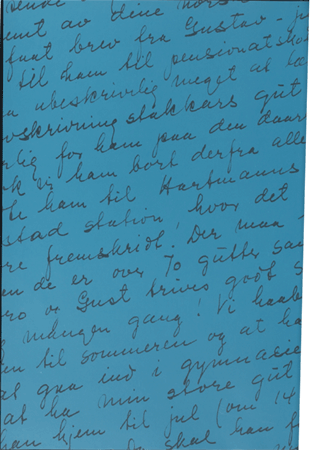 emt av dine
faat brev fra Gustav - j
til ham til pensionatsko
ubeskrivelig meget at læ
vskrivning stakkars gut
rlig for ham paa den daar
k vi ham bort derfra alle
te ham til Hartmanns
stad station hvor det
re fremskridt! Der maa
en de er over 70 gutter sam
ro og Gust trives godt s
mangen gang! Vi haabe
en til sommeren og at ha
at gaa ind i gymnasie
at ha min store gut
han hjem til jul (om 14
skal han f